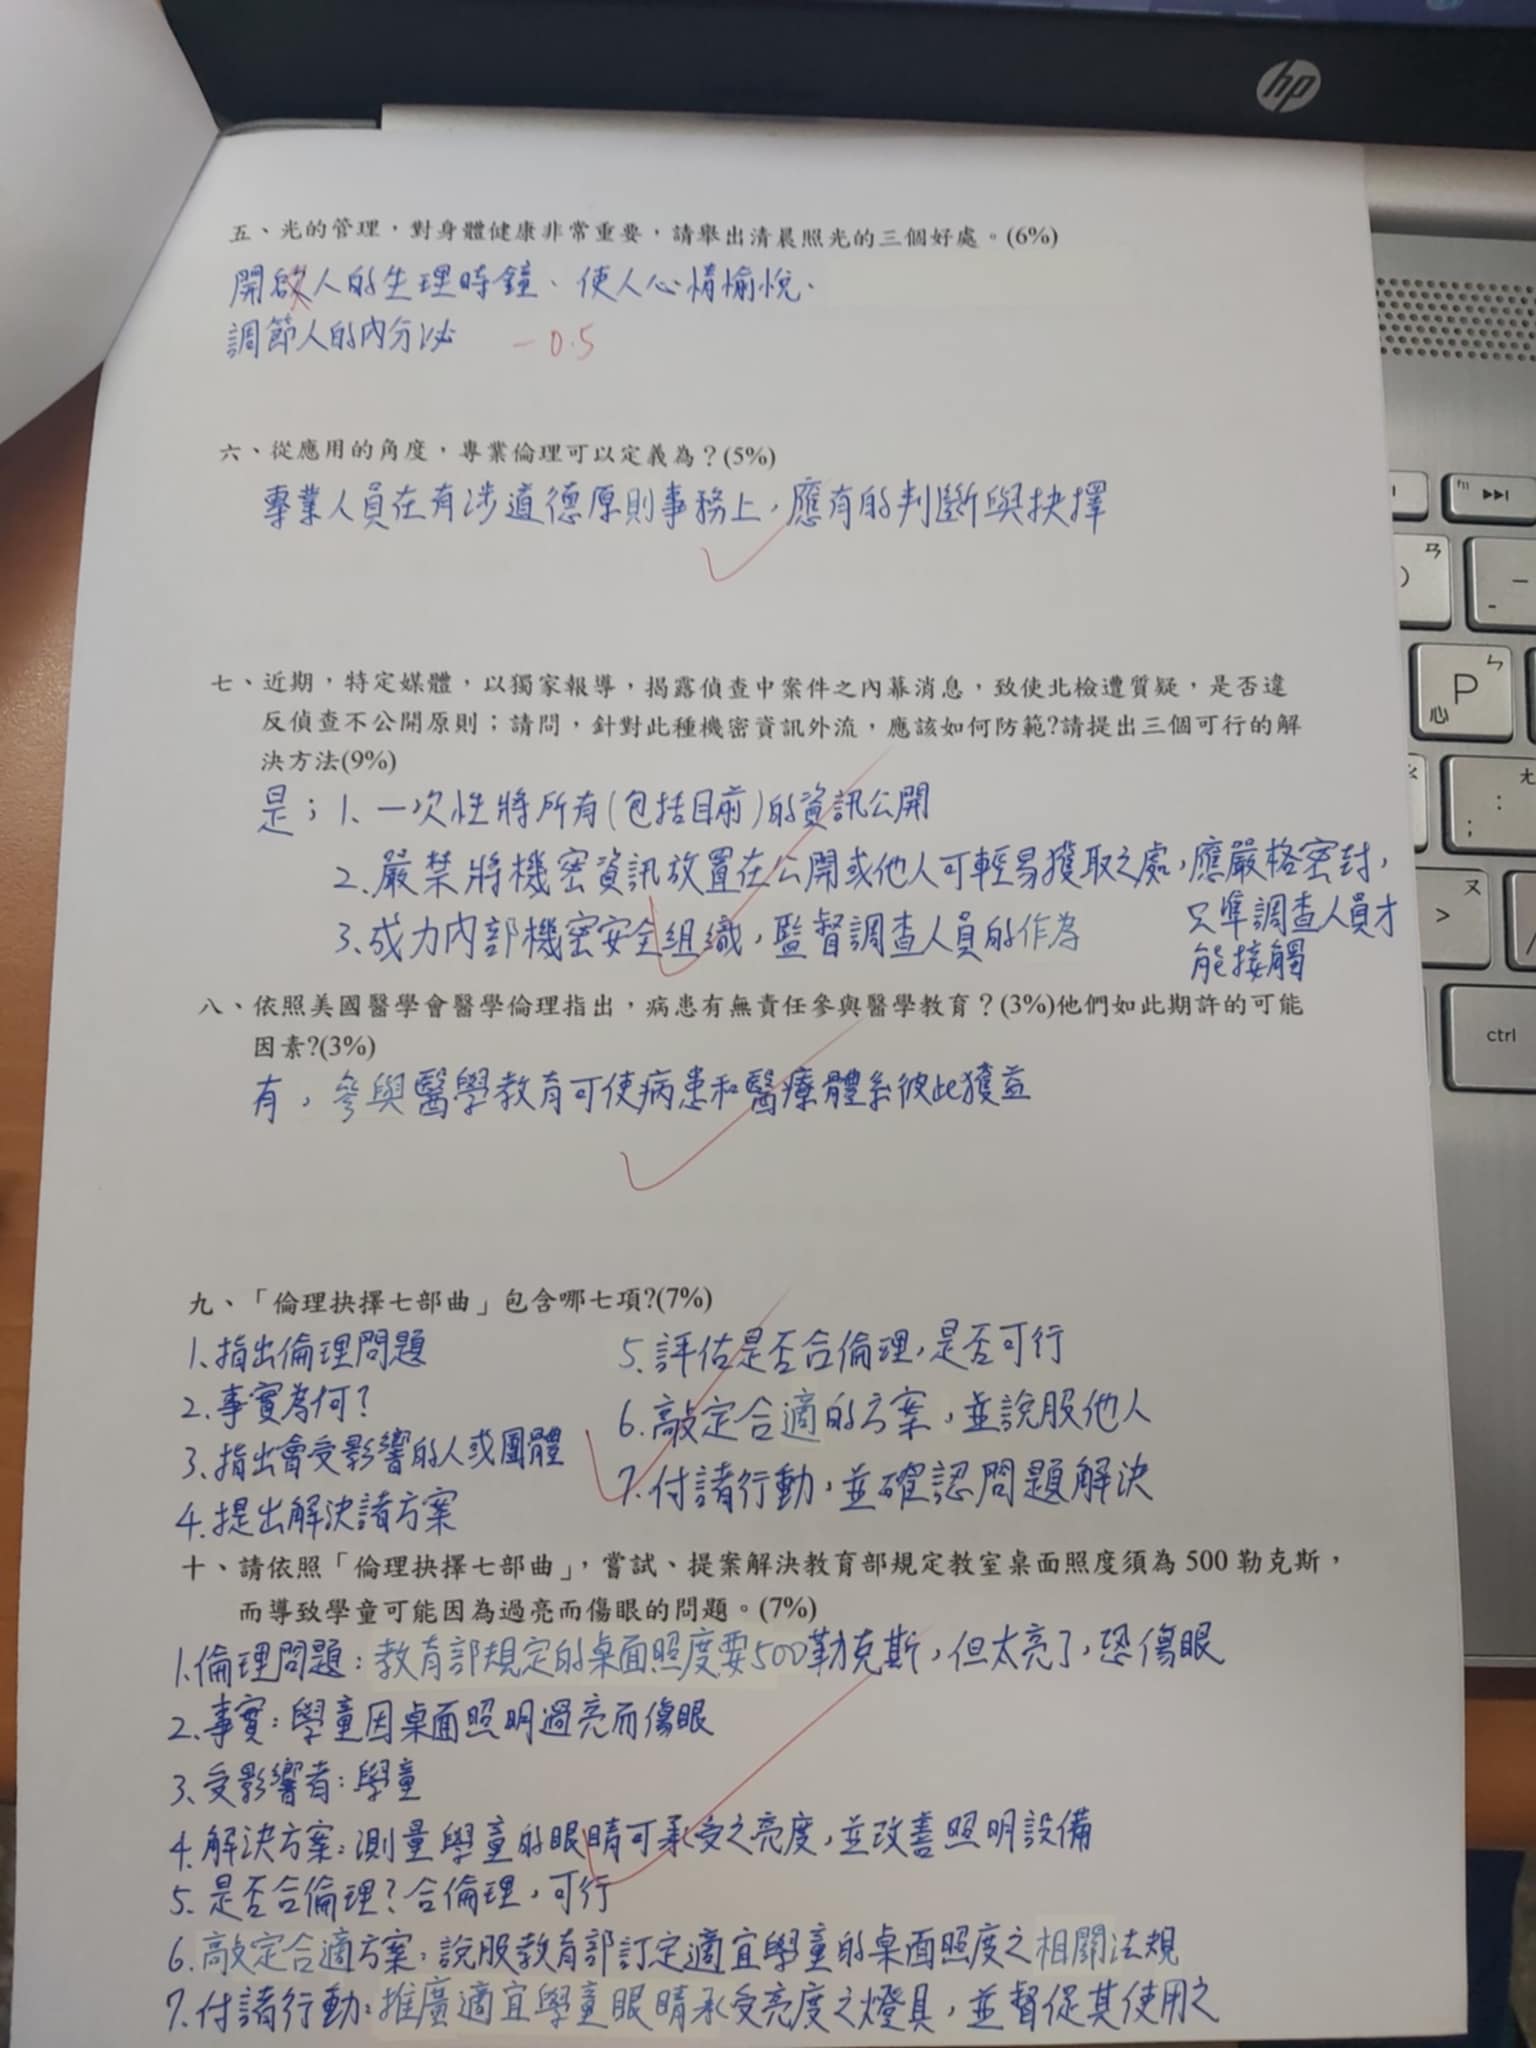 hp
五、光的管理，對身體健康非常重要，請舉出清晨照光的三個好處。(6%)
開啟人的生理時鐘、使人心情愉悅、
調節人的內分泌
-0.5
六、從應用的角度，專業倫理可以定義為？(5%)
專業人員在有涉道德原則事務上，應有的判斷與抉擇
七、近期，特定媒體，以獨家報導，揭露偵查中案件之內幕消息，致使北檢遭質疑，是否違
反偵查不公開原則；請問，針對此種機密資訊外流，應該如何防範?請提出三個可行的解
決方法(9%)
是；1、一次性將所有(包括目前)的資訊公開
2.嚴禁將機密資訊放置在公開或他人可輕易獲取之處，應嚴格密封，
只準調查人員才
能接觸
3.成力內部機密安全組織，監督調查人員的作為
八、依照美國醫學會醫學倫理指出，病患有無責任參與醫學教育？(3%)他們如此期許的可能
因素?(3%)
有，參與醫學教育可使病患和醫療體系彼此獲益
九、「倫理抉擇七部曲」包含哪七項?(7%)
1、指出倫理問題
2.事實為何?
3.指出會受影響的人或團體
4.提出解決諸方案
5.評估是否合倫理，是否可行
6.敲定合適的方案，並說服他人
7.付諸行動，並確認問題解決
十、請依照「倫理抉擇七部曲」，嘗試、提案解決教育部規定教室桌面照度須為 500 勒克斯，
而導致學童可能因為過亮而傷眼的問題。(7%)
1.倫理問題：教育部規定的桌面照度要500勒克斯，但太亮了，恐傷眼
2.事實：學童因桌面照明過亮而傷眼
3、受影響者：學童
4.解決方案：測量學童的眼睛可承受之亮度，並改善照明設備
5.是否合倫理？合倫理，可行
6.敲定合適方案：說服教育部訂定適宜學童的桌面照度之相關法規
7.付諸行動：推廣適宜學童眼睛承受亮度之燈具，並督促其使用之
f11
ㄣ
P
心
ㄤ
:
;
ㄡ
>
ctrl